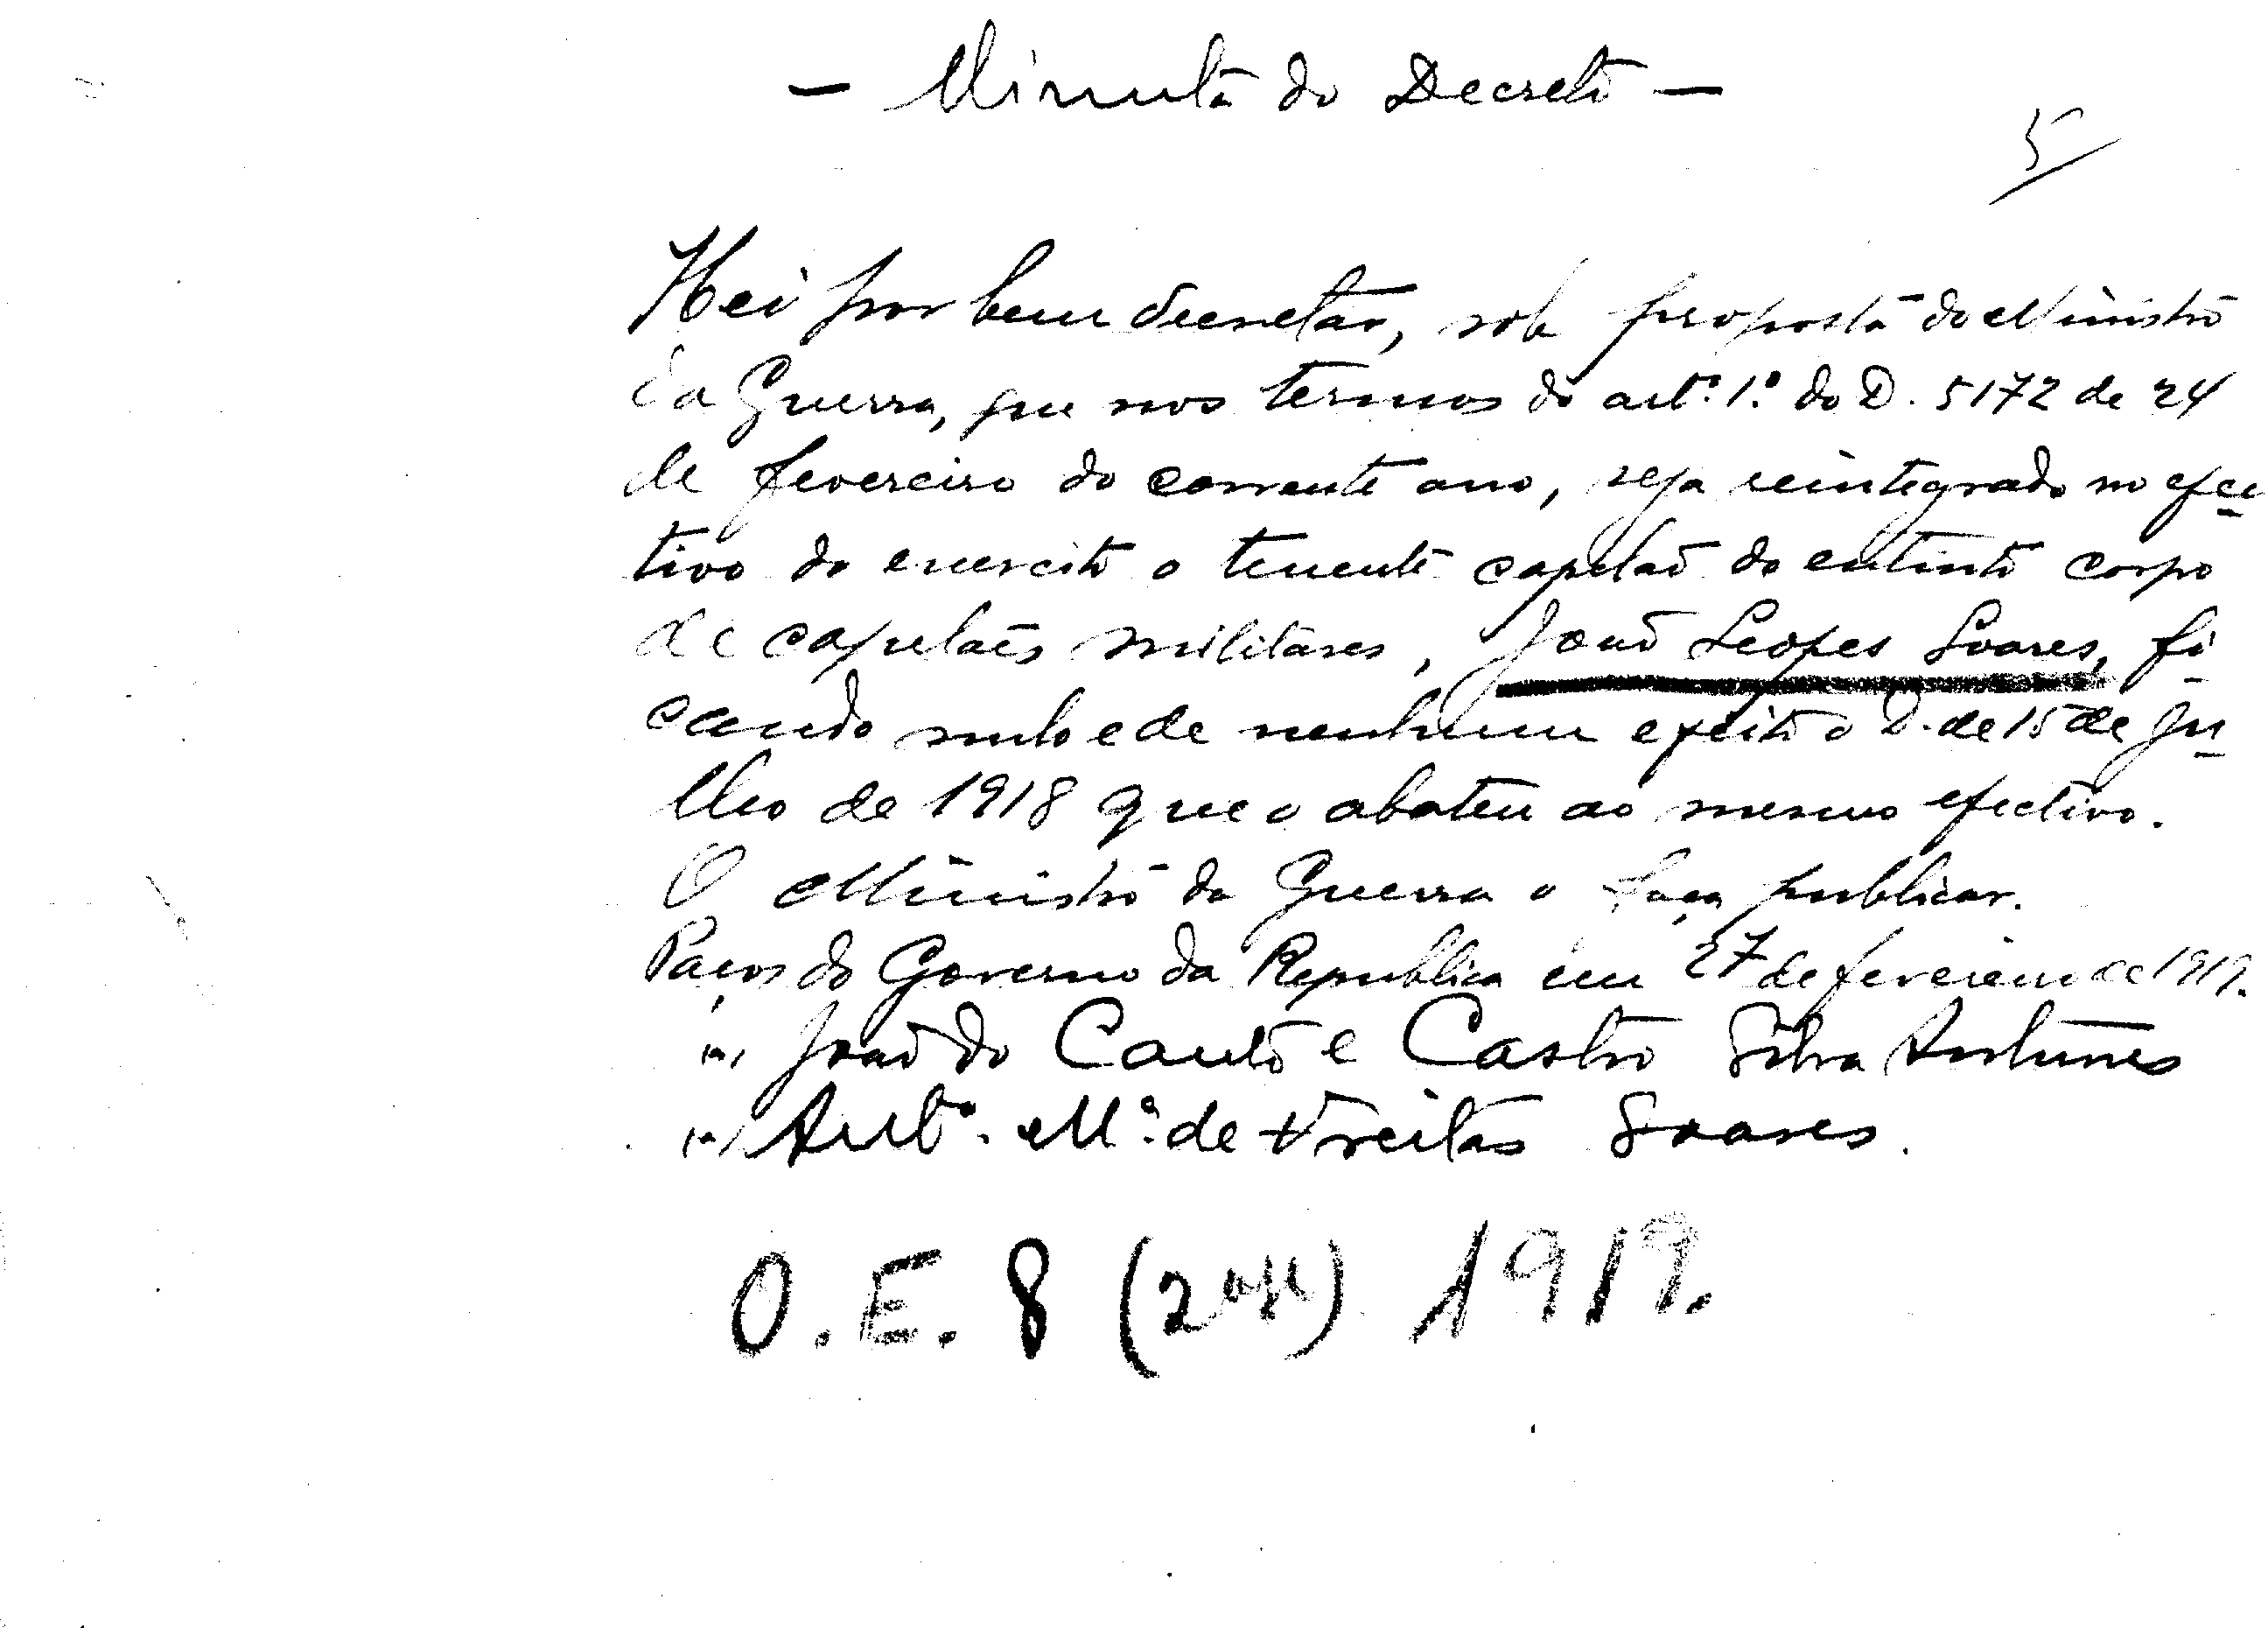 — Minuta do Decreto —
5
Hei por bem decretar, sob proposta do Ministro
da Guerra, que nos termos do art.º 1.º do D. 5172 de 24
de fevereiro do corrente ano, seja reintegrado no efec
tivo do exercito o tenente capelão do extinto corpo
de capelães militares, João Lopes Soares, fi-
cando nulo e de nenhum efeito o D. de 15 de Ju-
lho de 1918 que o abateu ao mesmo efectivo.
O Ministro da Guerra o faça publicar.
Paços do Governo da Republica em 27 de fevereiro de 1919.
(a) João do Canto e Castro Silva Antunes
(a) Ant.º M.ª de Freitas Soares.
O. E. 8 (2ª) 1919.